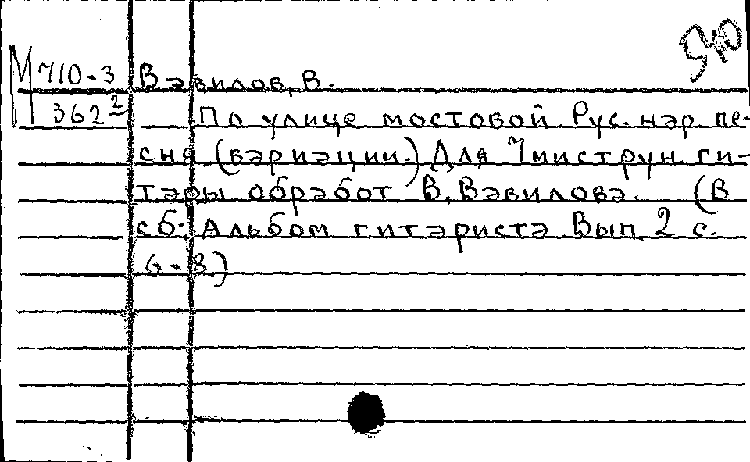 540
М 710-3 Вавилов, В.
362² По улице мостовой. Рус. нар. пе-
сня (вариации.) Для 7миструн. ги-
тары обработ В. Вавилова. (В
сб: Альбом гитариста. Вып. 2 с.
6-8.)